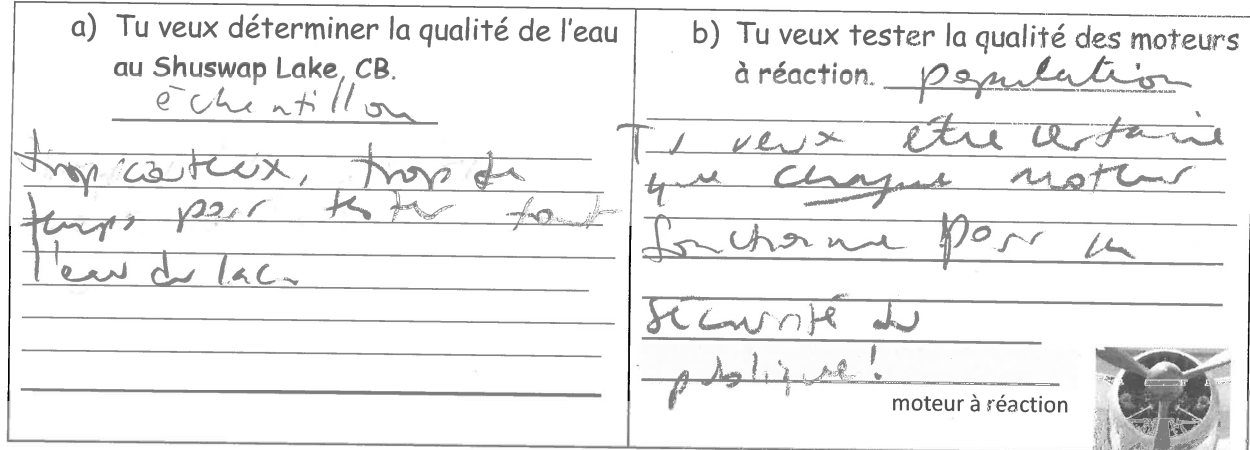 a) Tu veux déterminer la qualité de l'eau
au Shuswap Lake, CB.
échantillon
trop coûteux, trop de
temps pour tester tout
l'eau du lac.
b) Tu veux tester la qualité des moteurs
à réaction. population
Tu veux être certaine
que chaque moteur
fonctionne pour
sécurité du
publique!
moteur à réaction